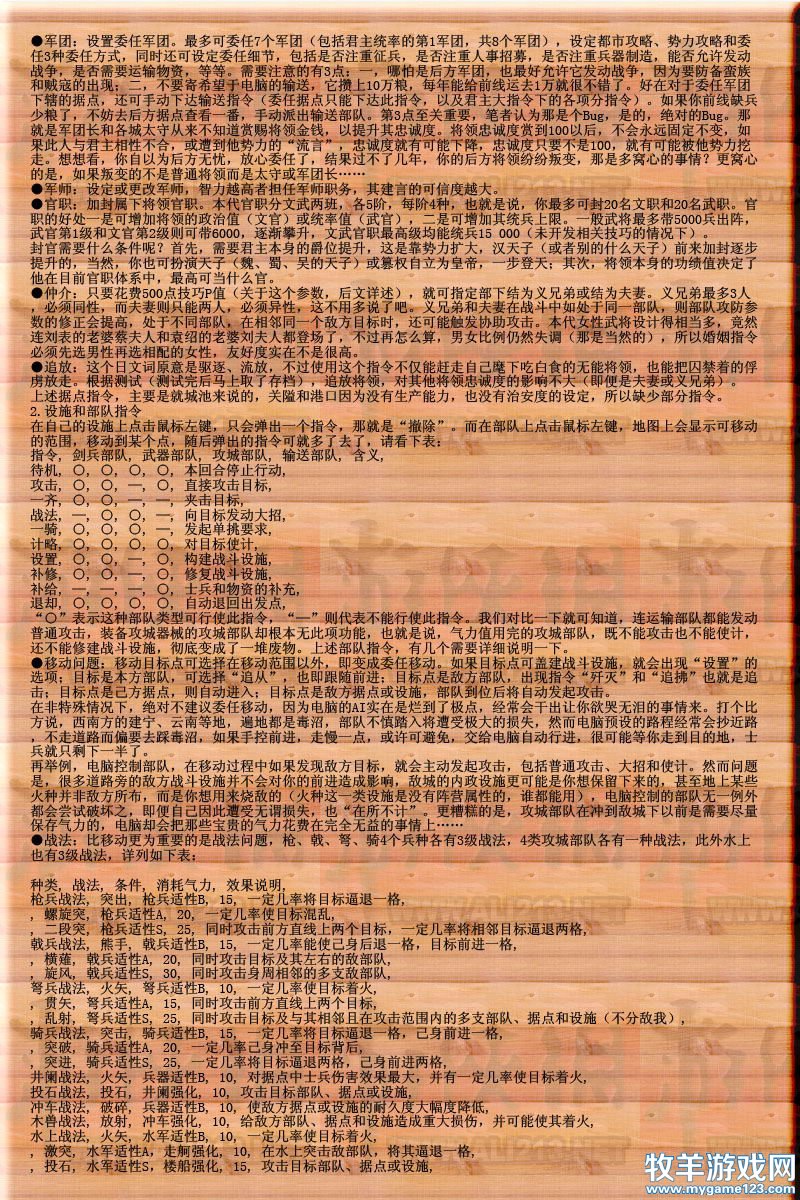 ●军团：设置委任军团。最多可委任7个军团（包括君主统率的第1军团，共8个军团），设定都市攻略、势力攻略和委
任3种委任方式，同时还可设定委任细节，包括是否注重征兵，是否注重人事招募，是否注重兵器制造，能否允许发动
战争，是否需要运输物资，等等。需要注意的有3点：一，哪怕是后方军团，也最好允许它发动战争，因为要防备蛮族
和贼寇的出现；二，不要寄希望于电脑的输送，它攒上10万粮，每年能给前线运去1万就很不错了。好在对于委任军团
下辖的据点，还可手动下达输送指令（委任据点只能下达此指令，以及君主大指令下的各项分指令）。如果你前线缺兵
少粮了，不妨去后方据点查看一番，手动派出输送部队。第3点至关重要，笔者认为那是个Bug，是的，绝对的Bug。那
就是军团长和各城太守从来不知道赏赐将领金钱，以提升其忠诚度。将领忠诚度赏到100以后，不会永远固定不变，如
果此人与君主相性不合，或遭到他势力的“流言”，忠诚度就有可能下降，忠诚度只要不是100，就有可能被他势力挖
走。想想看，你自以为后方无忧，放心委任了，结果过不了几年，你的后方将领纷纷叛变，那是多窝心的事情？更窝心
的是，如果叛变的不是普通将领而是太守或军团长……
●军师：设定或更改军师，智力越高者担任军师职务，其建言的可信度越大。
●官职：加封属下将领官职。本代官职分文武两班，各5阶，每阶4种，也就是说，你最多可封20名文职和20名武职。官
职的好处一是可增加将领的政治值（文官）或统率值（武官），二是可增加其统兵上限。一般武将最多带5000兵出阵，
武官第1级和文官第2级则可带6000，逐渐攀升，文武官职最高级均能统兵15 000（未开发相关技巧的情况下）。
封官需要什么条件呢？首先，需要君主本身的爵位提升，这是靠势力扩大，汉天子（或者别的什么天子）前来加封逐步
提升的，当然，你也可扮演天子（魏、蜀、吴的天子）或篡权自立为皇帝，一步登天；其次，将领本身的功绩值决定了
他在目前官职体系中，最高可当什么官。
●仲介：只要花费500点技巧P值（关于这个参数，后文详述），就可指定部下结为义兄弟或结为夫妻。义兄弟最多3人
，必须同性，而夫妻则只能两人，必须异性，这不用多说了吧。义兄弟和夫妻在战斗中如处于同一部队，则部队攻防参
数的修正会提高，处于不同部队，在相邻同一个敌方目标时，还可能触发协助攻击。本代女性武将设计得相当多，竟然
连刘表的老婆蔡夫人和袁绍的老婆刘夫人都登场了，不过再怎么算，男女比例仍然失调（那是当然的），所以婚姻指令
必须先选男性再选相配的女性，友好度实在不是很高。
●追放：这个日文词原意是驱逐、流放，不过使用这个指令不仅能赶走自己麾下吃白食的无能将领，也能把囚禁着的俘
虏放走。根据测试（测试完后马上取了存档），追放将领，对其他将领忠诚度的影响不大（即便是夫妻或义兄弟）。
上述据点指令，主要是就城池来说的，关隘和港口因为没有生产能力，也没有治安度的设定，所以缺少部分指令。
2.设施和部队指令
在自己的设施上点击鼠标左键，只会弹出一个指令，那就是“撤除”。而在部队上点击鼠标左键，地图上会显示可移动
的范围，移动到某个点，随后弹出的指令可就多了去了，请看下表：
指令，剑兵部队，武器部队，攻城部队，输送部队，含义，
待机，〇，〇，〇，〇，本回合停止行动，
攻击，〇，〇，—，〇，直接攻击目标，
一齐，〇，〇，—，—，夹击目标，
战法，—，〇，〇，—，向目标发动大招，
一骑，〇，〇，〇，—，发起单挑要求，
计略，〇，〇，〇，〇，对目标使计，
设置，〇，〇，—，〇，构建战斗设施，
补修，〇，〇，—，〇，修复战斗设施，
补给，—，—，—，〇，士兵和物资的补充，
退却，〇，〇，〇，〇，自动退回出发点，
“〇”表示这种部队类型可行使此指令，“—”则代表不能行使此指令。我们对比一下就可知道，连运输部队都能发动
普通攻击，装备攻城器械的攻城部队却根本无此项功能，也就是说，气力值用完的攻城部队，既不能攻击也不能使计，
还不能修建战斗设施，彻底变成了一堆废物。上述部队指令，有几个需要详细说明一下。
●移动问题：移动目标点可选择在移动范围以外，即变成委任移动。如果目标点可盖建战斗设施，就会出现“设置”的
选项；目标是本方部队，可选择“追从”，也即跟随前进；目标点是敌方部队，出现指令“歼灭”和“追拂”也就是追
击；目标点是己方据点，则自动进入；目标点是敌方据点或设施，部队到位后将自动发起攻击。
在非特殊情况下，绝对不建议委任移动，因为电脑的AI实在是烂到了极点，经常会干出让你欲哭无泪的事情来。打个比
方说，西南方的建宁、云南等地，遍地都是毒沼，部队不慎踏入将遭受极大的损失，然而电脑预设的路程经常会抄近路
，不走道路而偏要去踩毒沼，如果手控前进，走慢一点，或许可避免，交给电脑自动行进，很可能等你走到目的地，士
兵就只剩下一半了。
再举例，电脑控制部队，在移动过程中如果发现敌方目标，就会主动发起攻击，包括普通攻击、大招和使计。然而问题
是，很多道路旁的敌方战斗设施并不会对你的前进造成影响，敌城的内政设施更可能是你想保留下来的，甚至地上某些
火种并非敌方所布，而是你想用来烧敌的（火种这一类设施是没有阵营属性的，谁都能用），电脑控制的部队无一例外
都会尝试破坏之，即便自己因此遭受无谓损失，也“在所不计”。更糟糕的是，攻城部队在冲到敌城下以前是需要尽量
保存气力的，电脑却会把那些宝贵的气力花费在完全无益的事情上……
●战法：比移动更为重要的是战法问题，枪、戟、弩、骑4个兵种各有3级战法，4类攻城部队各有一种战法，此外水上
也有3级战法，详列如下表：
种类，战法，条件，消耗气力，效果说明，
枪兵战法，突出，枪兵适性B，15，一定几率将目标逼退一格，
，螺旋突，枪兵适性A，20，一定几率使目标混乱，
，二段突，枪兵适性S，25，同时攻击前方直线上两个目标，一定几率将相邻目标逼退两格，
戟兵战法，熊手，戟兵适性B，15，一定几率能使己身后退一格，目标前进一格，
，横薙，戟兵适性A，20，同时攻击目标及其左右的敌部队，
，旋风，戟兵适性S，30，同时攻击身周相邻的多支敌部队，
弩兵战法，火矢，弩兵适性B，10，一定几率使目标着火，
，贯矢，弩兵适性A，15，同时攻击前方直线上两个目标，
，乱射，弩兵适性S，25，同时攻击目标及与其相邻且在攻击范围内的多支部队、据点和设施（不分敌我），
骑兵战法，突击，骑兵适性B，15，一定几率将目标逼退一格，己身前进一格，
，突破，骑兵适性A，20，一定几率己身冲至目标背后，
，突进，骑兵适性S，25，一定几率将目标逼退两格，己身前进两格，
井阑战法，火矢，兵器适性B，10，对据点中士兵伤害效果最大，并有一定几率使目标着火，
投石战法，投石，井阑强化，10，攻击目标部队、据点或设施，
冲车战法，破碎，兵器适性B，10，使敌方据点或设施的耐久度大幅度降低，
木兽战法，放射，冲车强化，10，给敌方部队、据点和设施造成重大损伤，并可能使其着火，
水上战法，火矢，水军适性B，10，一定几率使目标着火，
，激突，水军适性A，走舸强化，10，在水上突击敌部队，将其逼退一格，
，投石，水军适性S，楼船强化，15，攻击目标部队、据点或设施，
牧羊游戏网
www.mygame123.com